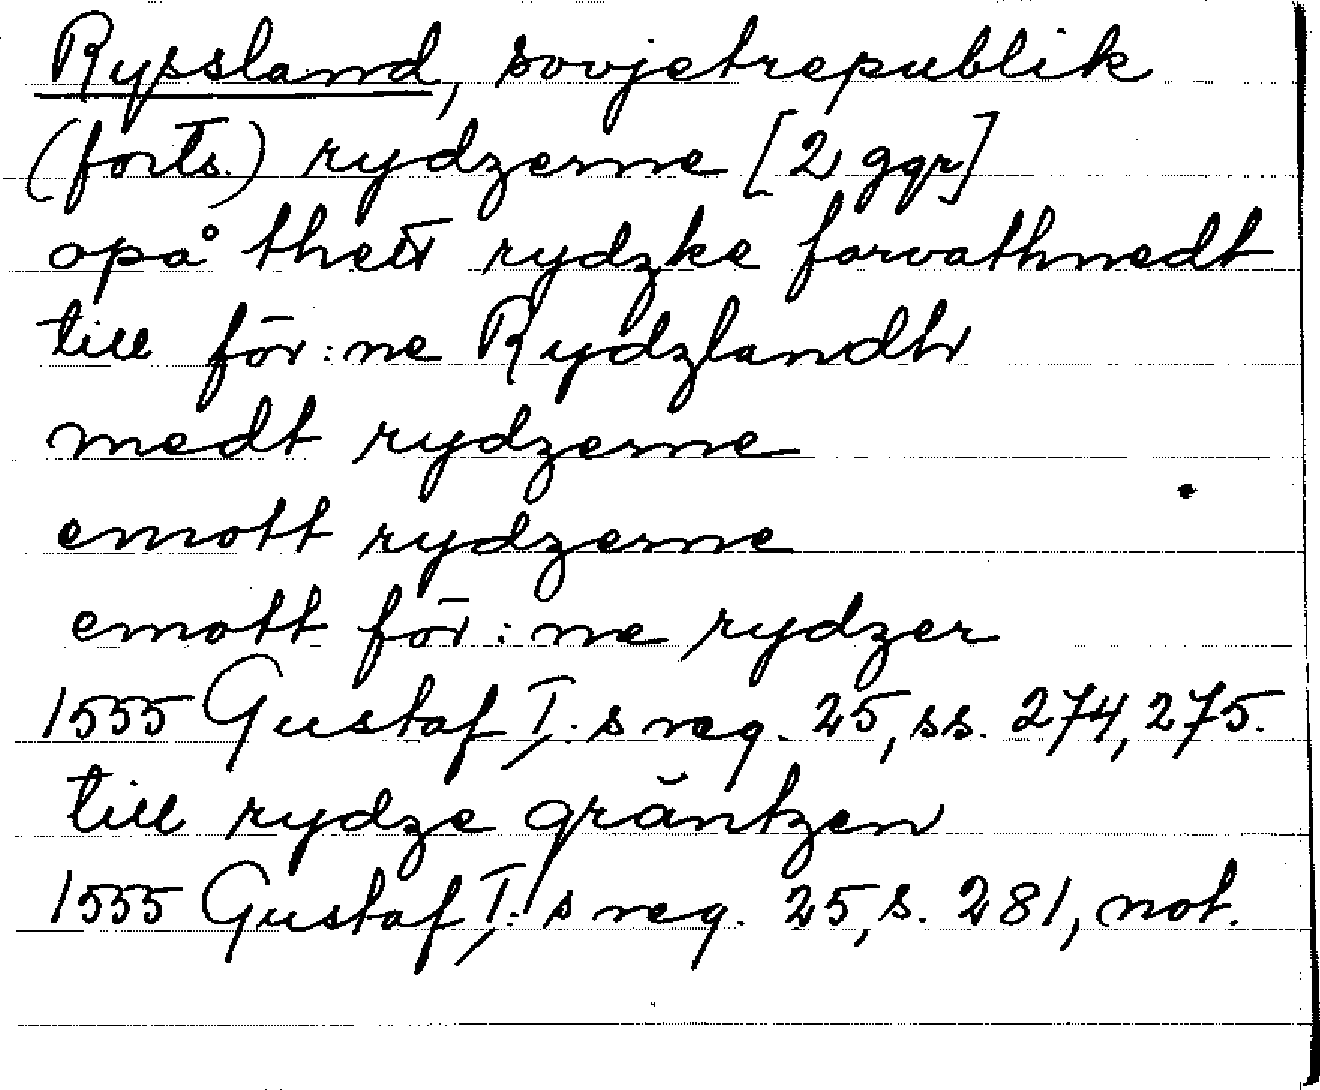 Ryssland, sovjetrepublik
(forts.) rydzerne [2 ggr]
opå thett rydzke farvathnedt
till för:ne Rydzlandh
medt rydzerne
emott rydzerne
emott för:ne rydzer
1555 Gustaf I:s reg. 25, ss. 274, 275.
till rydze gräntzen
1555 Gustaf I:s reg. 25, s. 281, not.